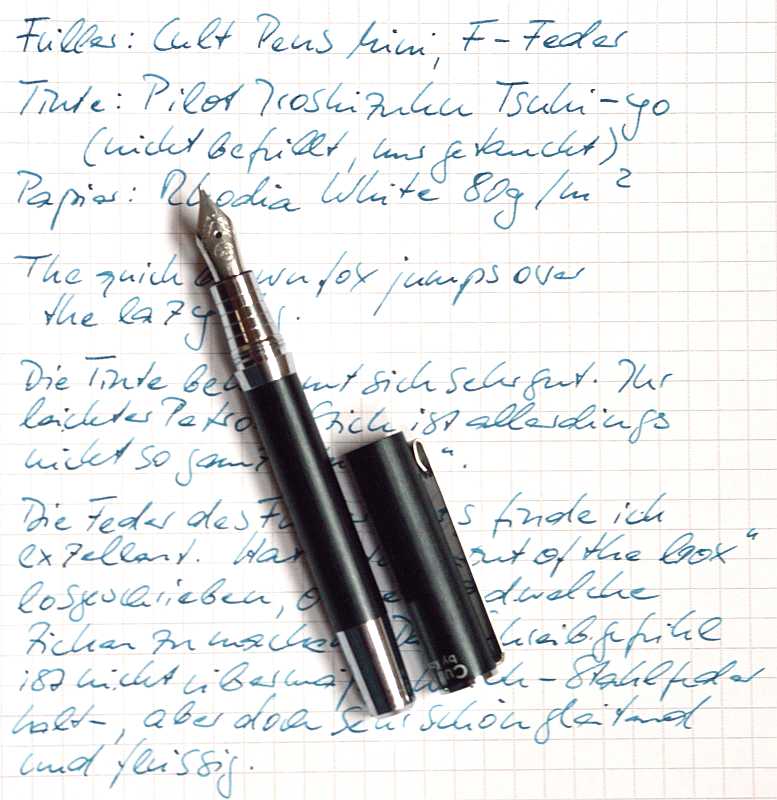 Füller: Cult Pens Mini, F-Feder
Tinte: Pilot Iroshizuku Tsuki-yo
(nicht befüllt, nur getaucht)
Papier: Rhodia White 80g/m²
The quick brown fox jumps over
the lazy
Die Tinte sich sehr gut. Ihr
leichter Stich ist allerdings
nicht so ganz ".
Die Feder des finde ich
exzellent. out of the box"
losgeschrieben,
Zicken zu machen. Das Schreibgefühl
ist nicht - Stahlfeder
halt -, aber doch sehr schön gleitend
und flüssig.